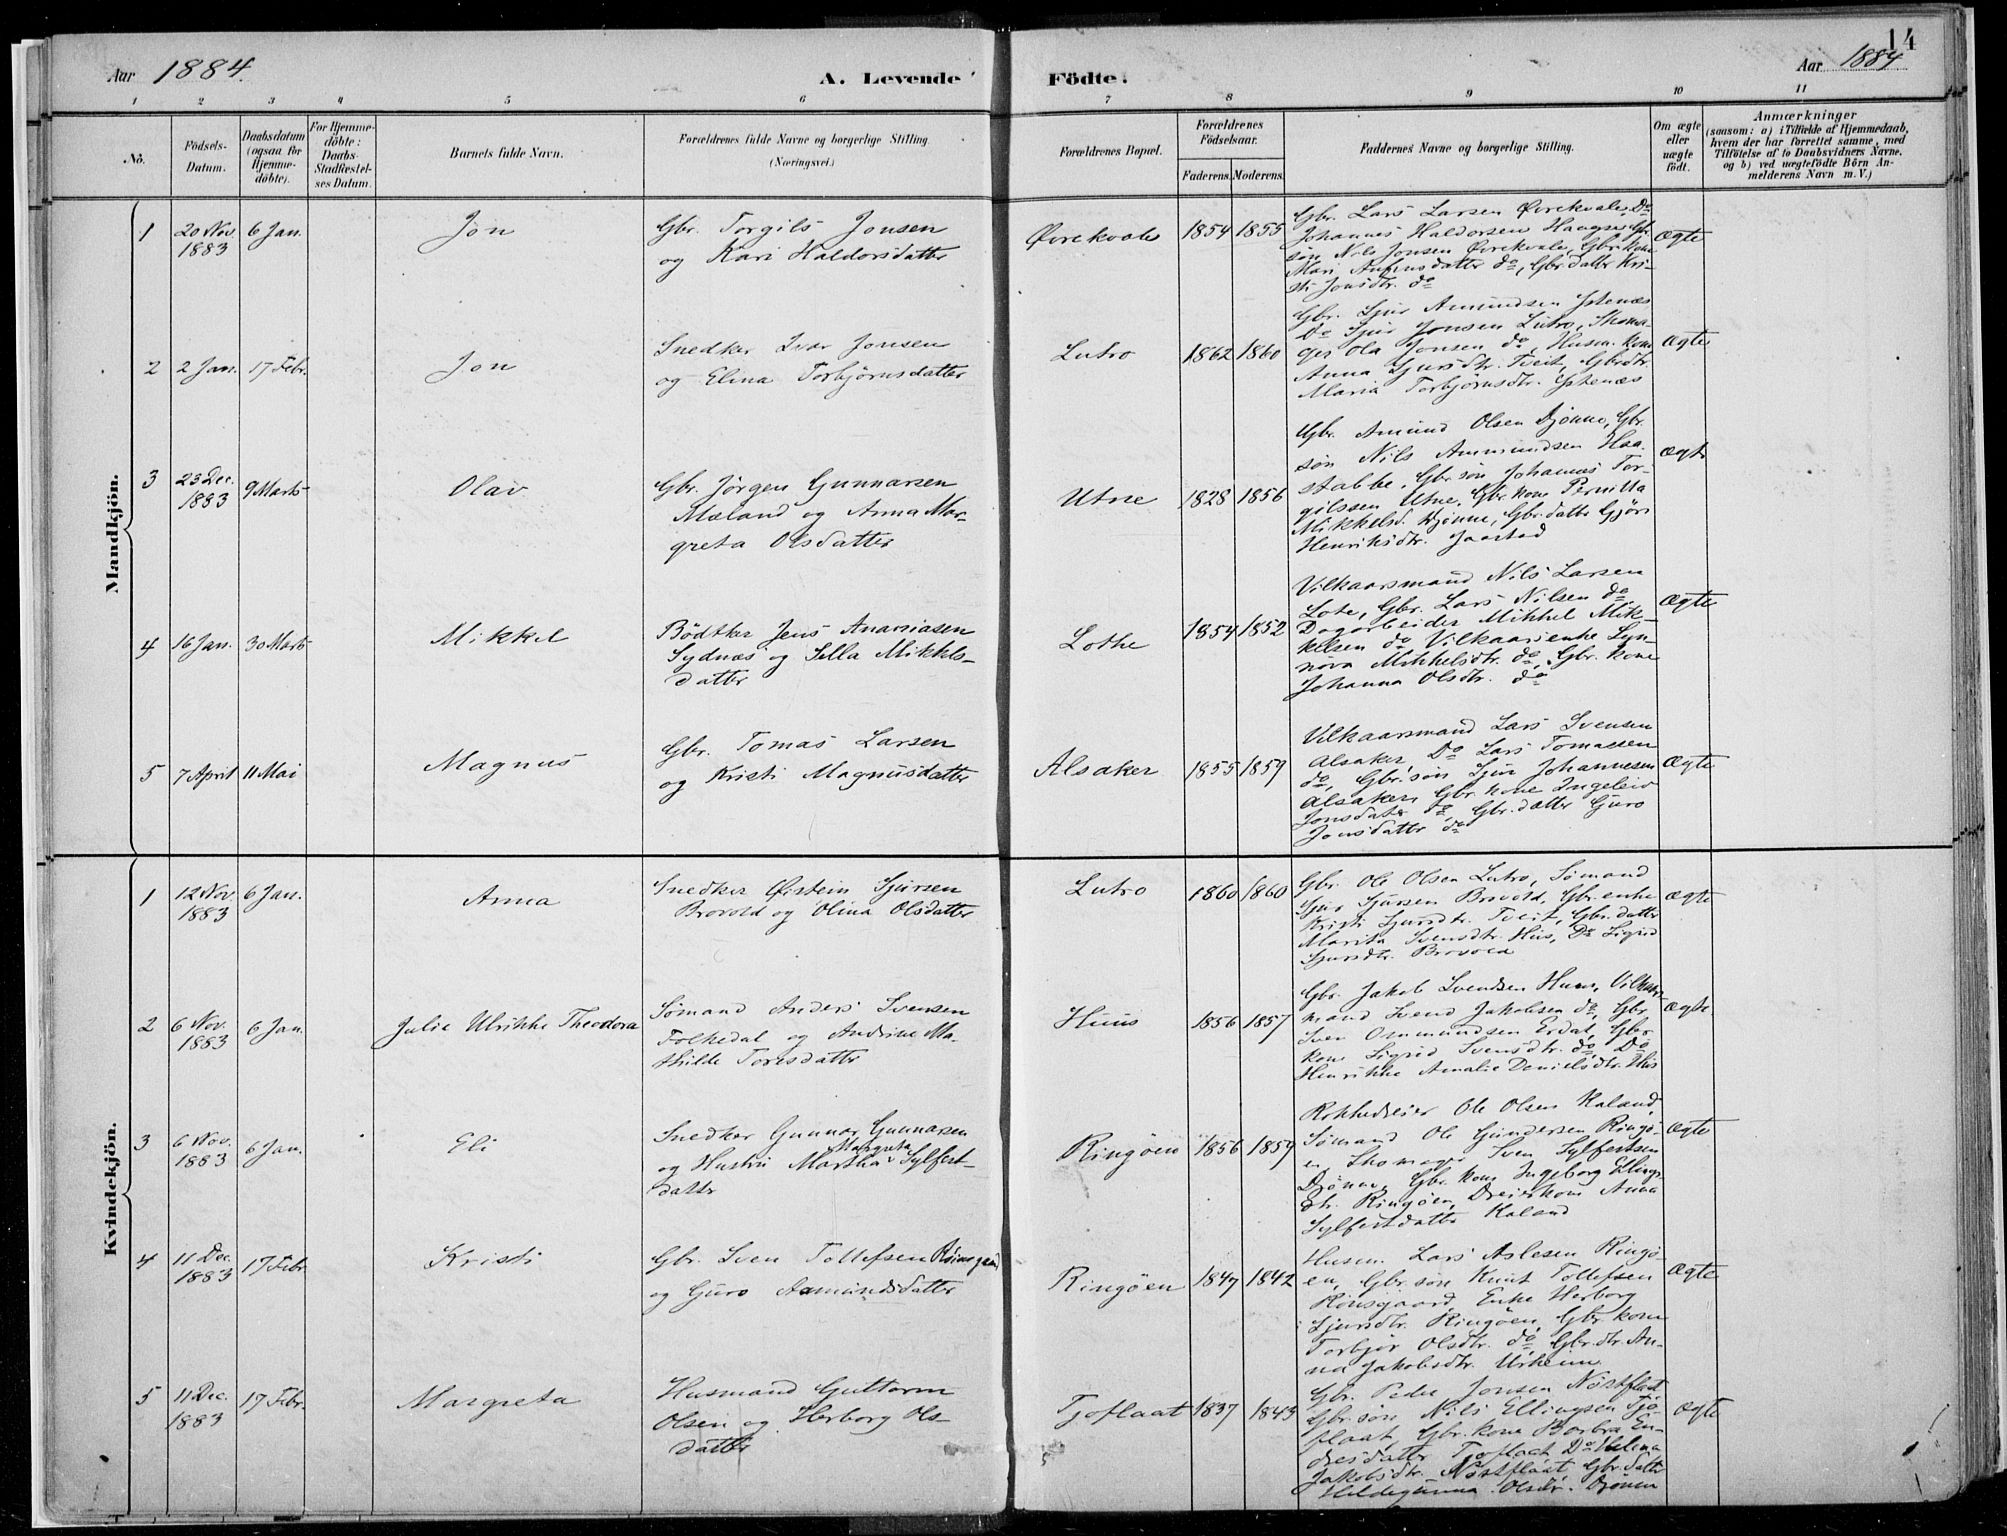 14
Aar 1884.
A. Levende
Födte.
Aar 1884
1 2 3 4 5 6 7 8 9 10 11
No.
Födsels-
Datum.
Daabsdatum
(ogsaa for
Hjemme-
döbte).
For Hjemme-
döbte:
Daabs-
Stadfæstel-
ses Datum.
Barnets fulde Navn.
Forældrenes fulde Navne og borgerlige Stilling.
(Næringsvei.)
Forældrenes Bopæl.
Forældrenes
Födselsaar.
Faderens.
Moderens.
Faddernes Navne og borgerlige Stilling.
Om ægte
eller
uægte
födt.
Anmærkninger
(saasom: a) i Tilfælde af Hjemmedaab,
hvem der har forrettet samme, med
Tilföielse af to Daabsvidners Navne,
og b) ved uægtefödte Börn An-
melderens Navn m. V.)
Mandkjön.
1
20 Nov.
1883
6 Jan.
Jon
Gbr. Torgils Jonsen
og Kari Haldorsdatter
Øvrekvale
1854
1855
Gbr. Lars Larsen Øvrekvale, Do
Johannes Haldorsen Haugse, Gbr.
søn Nils Jonsen Øvrekvale, Gbr. kone
Mari Anfinsdatter do, Gbr.datter Kri-
sti Jonsdtr. do
Ægte
2
2 Jan.
17 Febr.
Jon
Snedker Ivar Jonsen
og Elina Torbjörnsdatter
Lutro
1862
1860
Gbr. Sjur Amundsen Ystenæs
Do Sjur Jonsen Lutro, Skoma-
ger Ola Jonsen do, Husm. kone
Anna Sjursdtr. Tveit, Gbrdtr.
Maria Torbjörnsdtr. Ystenæs
Ægte
3
23 Dec.
1883
9 Marts
Olav
Gbr. Jörgen Gunnarsen
Mæland og Anna Mar-
greta Olsdatter
Utne
1828
1856
Gbr. Amund Olsen Djönne, Gbr.
søn Nils Ammundsen Haa-
stabbe, Gbr søn Johannes Tor-
gilssen Utne, Gbr. kone Pernilla
Mikkelsd. Djönne, Gbr. datter Gjöri
Henriksdtr. Jaastad
Ægte
4
16 Jan.
30 Marts
Mikkel
Bödtker Jens Ananiasen
Sydnæs og Silla Mikkels-
datter
Lothe
1854
1852
Vilkaarsmand Nils Larsen
Lote, Gbr. Lars Nilsen do
Dagarbeider Mikkel Mik-
kelsen do Vilkaarsenke Syn-
növa Mikkelsdtr. do, Gbr. kone
Johanna Olsdtr. do
Ægte
5
7 April
11 Mai
Magnus
Gbr. Tomas Larsen
og Kristi Magnusdatter
Alsaker
1855
1859
Vilkaarsmand Lars Svensen
Alsaker, Do Lars Tomassen
do, Gbr. søn Sjur Johannesen
Alsaker, Gbr. kone Ingeleiv
Jonsdatter do, Gbr. datter Guro
Jonsdatter do
Ægte
Kvindekjön.
1
12 Nov.
1883
6 Jan.
Anna
Snedker Øistein Sjursen
Brovold og Olina Olsdatter
Lutro
1860
1860
Gbr. Ole Olsen Lutro, Sømand
Sjur Sjursen Brovold, Gbr. enke
Kristi Sjursdtr. Tveit, Gbr. datter
Marita Svensdtr. Hus, Do Sigrid
Sjursdtr. Brovold
Ægte
2
6 Nov.
1883
6 Jan.
Julie Ulrikke Theodora
Sømand Anders Svensen
Folkedal og Andrine Ma-
thilde Toresdatter
Huus
1856
1857
Gbr. Jakob Svendsen Huus, Vilkaars-
mand Svend Jakobsen do, Gbr.
Sven Ommundsen Erdal, Gbr
kone Sigrid Svensdtr. do, Do
Henrikke Amalie Danielsdtr. Hus
Ægte
3
6 Nov.
1883
6 Jan.
Eli
Snedker Gunnar Gunnarsen
og Hustru Martha Margreta Sylfest-
datter
Ringøen
1856
1859
Rokkedreier Ole Olsen Kaland,
Sømand Ole Gundersen Ringø-
en, Skomager Sven Sylfestsen
Djönne, Gbr. kone Ingeborg Ellings
dtr. Ringøen, Dreierkone Anna
Sylfestdatter Kaland
Ægte
4
11 Dec.
1883
17 Febr.
Kristi
Gbr. Sven Tollefsen Röinsgaard
og Guro Aamundsdatter
Ringøen
1847
1842
Husm. Lars Aslesen Ringø-
en, Gbr. søn Knut Tollefsen
Rönsgaard, Enke Herborg
Sjursdtr. Ringøen, Gbr. kone
Torbjör Olsdtr. do, Gbr. dtr. An-
na Jakobsdtr. Urheim
Ægte
5
11 Dec.
1883
17 Febr.
Margreta
Husmand Guttorm
Olsen og Herborg Ols-
datter
Tjoflaat
1837
1843
Gbr. Peder Jonsen Nöstflaat
Gbr. søn Nils Ellingsen Tjo-
flaat, Gbr. kone Barbra En-
dresdatter Tjoflaat, Do Helena
Jakobsdtr. Nöstflaat, Gbr. datter
Hildegunna Olsdtr. Djönne
Ægte